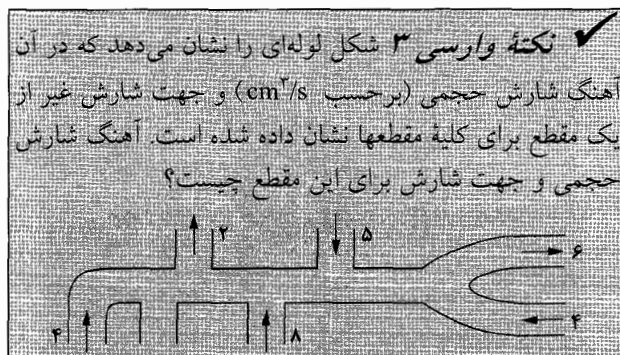 نکتهٔ وارسی ۳ شکل لوله‌ای را نشان می‌دهد که در آن
آهنگ شارش حجمی (برحسب cm³/s) و جهت شارش غیر از
یک مقطع برای کلیهٔ مقطعها نشان داده شده است. آهنگ شارش
حجمی و جهت شارش برای این مقطع چیست؟
۲ ۵ ۶
۴ ۸ ۴